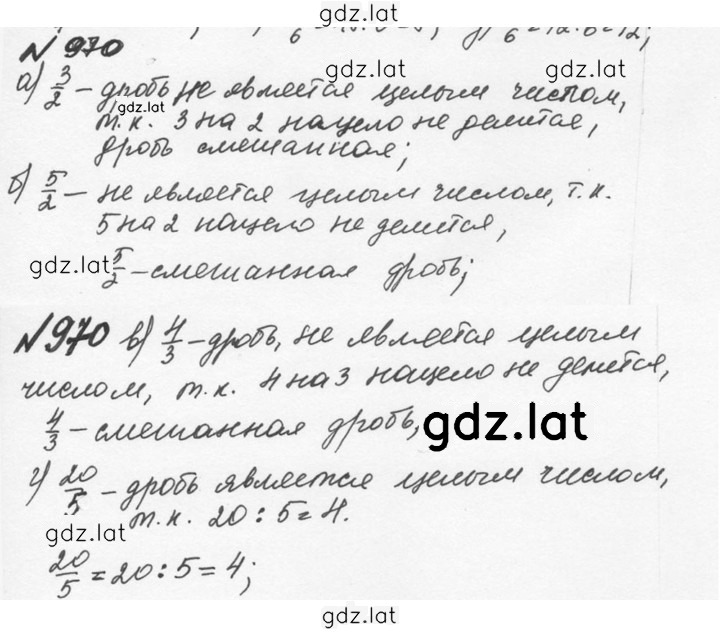 gdz.lat
6 = 12:6=12;
№ 970
gdz.lat
gdz.lat
а) 3/2 - дробь не является целым числом,
gdz.lat
т.к. 3 на 2 нацело не делится,
дробь смешанная;
б) 5/2 - не является целым числом, т.к.
5 на 2 нацело не делится,
gdz.lat
5/2 - смешанная дробь;
gdz.lat
№970 в) 4/3 - дробь, не является целым
числом, т.к. 4 на 3 нацело не делится,
4/3 - смешанная дробь,
gdz.lat
г) 20/5 - дробь является целым числом,
т.к. 20:5=4.
gdz.lat
20/5 = 20:5=4;
gdz.lat